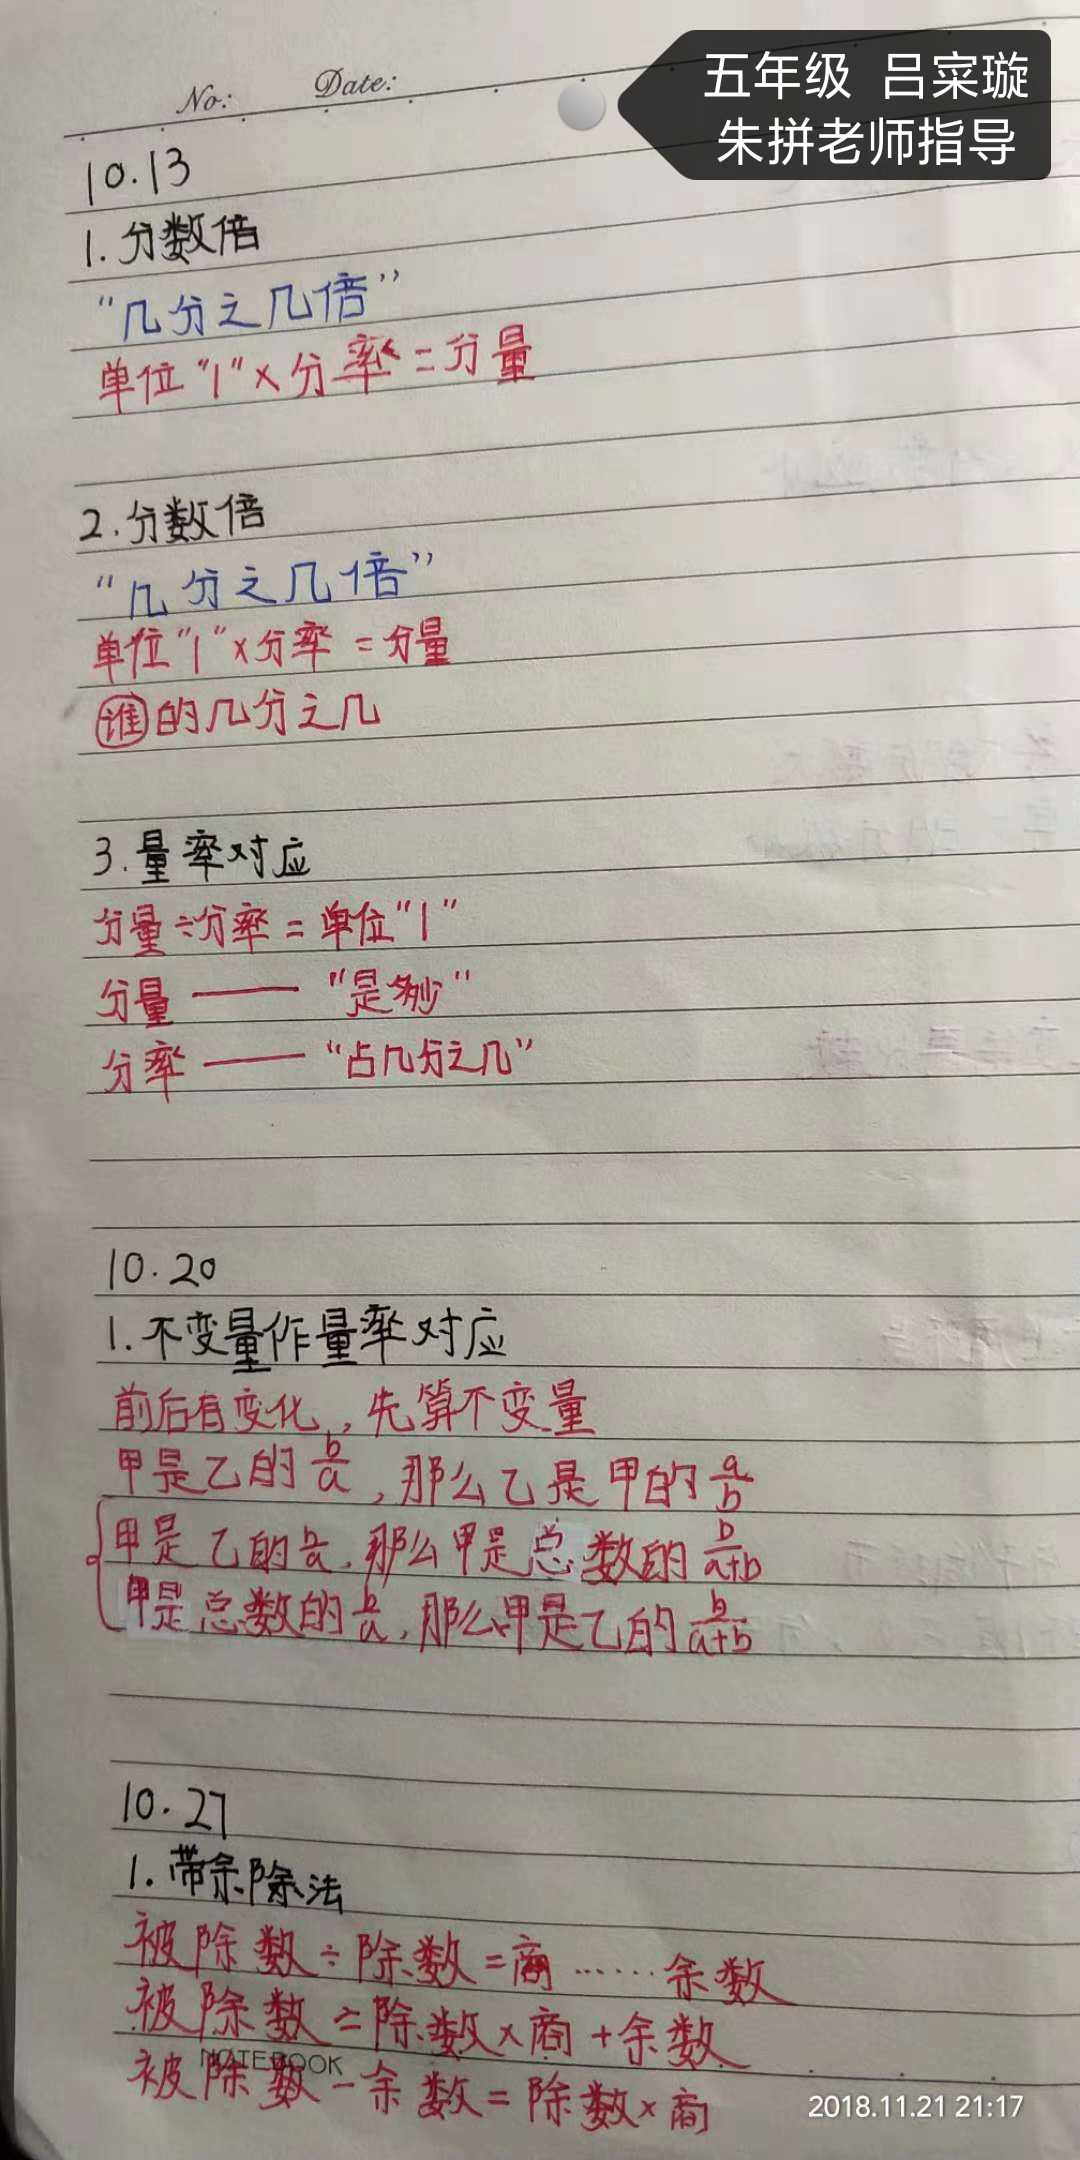 五年级 吕寀璇
朱拼老师指导
No: Date:
10.13
1.分数倍
“几分之几倍”
单位“1”×分率=分量
2.分数倍
“几分之几倍”
单位“1”×分率=分量
谁的几分之几
3.量率对应
分量÷分率=单位“1”
分量——“是多少”
分率——“占几分之几”
10.20
1.不变量作量率对应
前后有变化,先算不变量
甲是乙的b/a,那么乙是甲的a/b
甲是乙的b/a,那么甲是总数的b/a+b
甲是总数的b/a,那么甲是乙的b/a+b
10.27
1.带余除法
被除数÷除数=商……余数
被除数=除数×商+余数
NOTEBOOK
被除数-余数=除数×商
2018.11.21 21:17